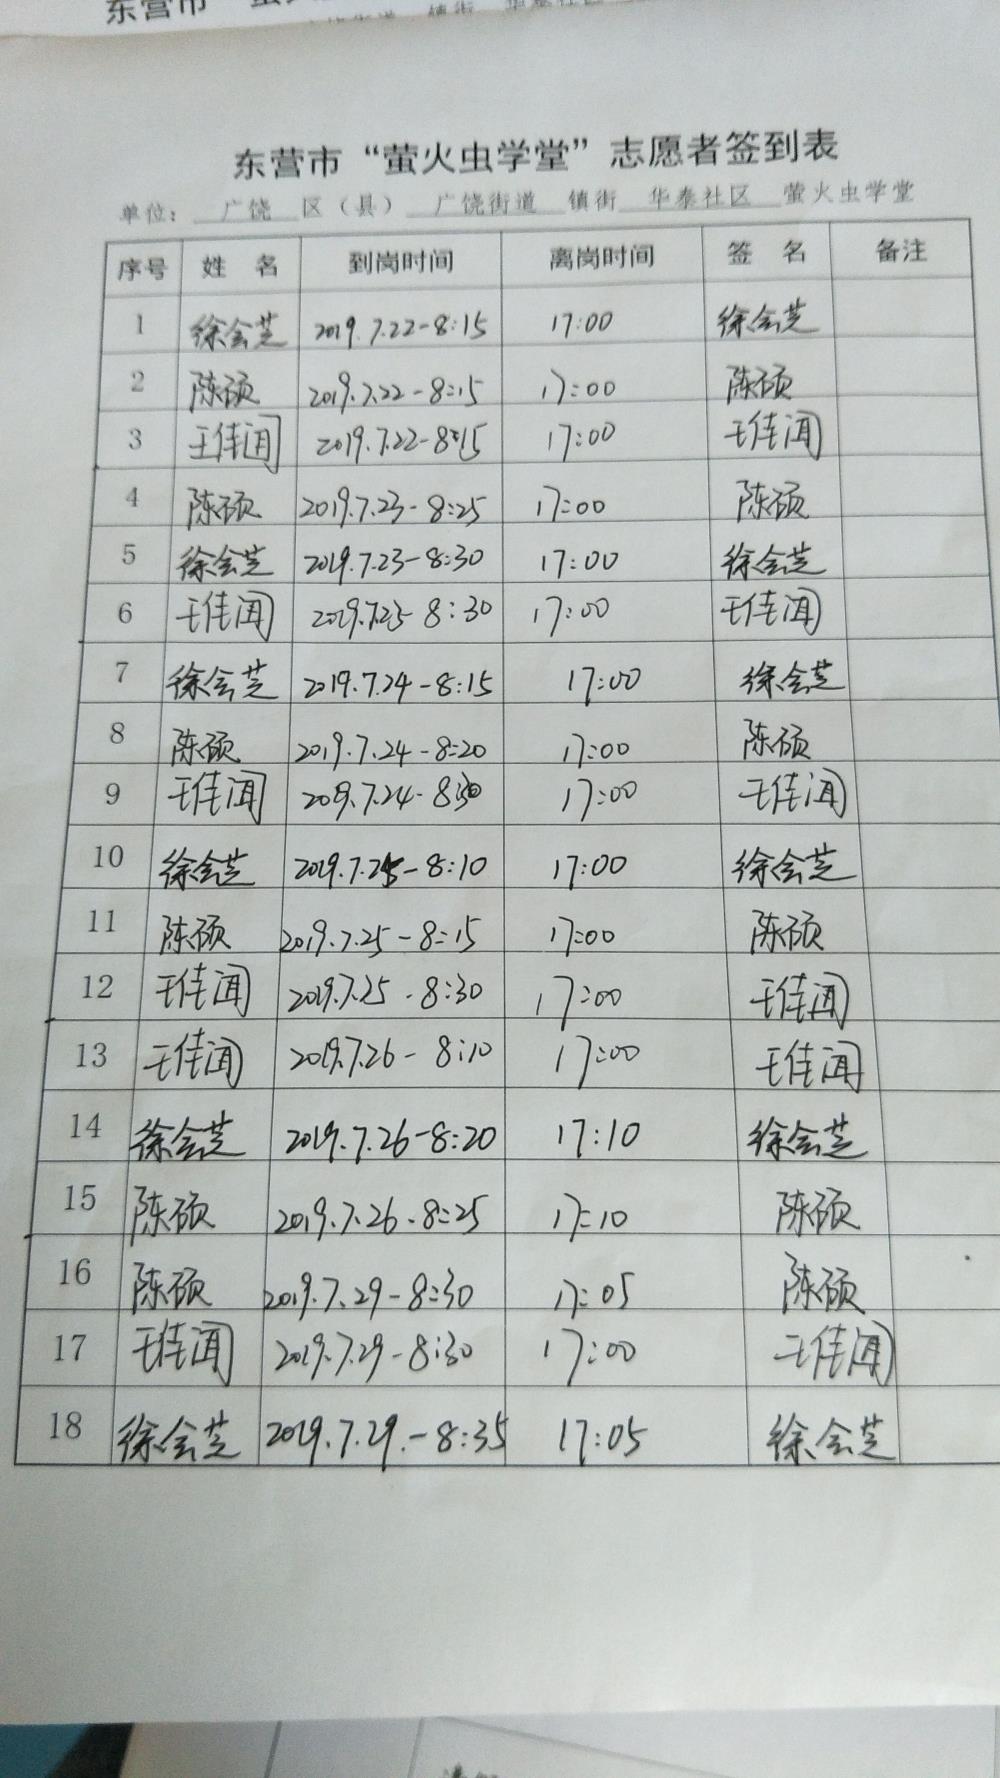 东营市“萤火虫学堂”志愿者签到表
单位： 广饶 区（县） 广饶街道 镇街 华泰社区 萤火虫学堂
序号 姓 名 到岗时间 离岗时间 签 名 备注
1 徐会芝 2019.7.22-8:15 17:00 徐会芝
2 陈硕 2019.7.22-8:15 17:00 陈硕
3 王佳闻 2019.7.22-8:15 17:00 王佳闻
4 陈硕 2019.7.23-8:25 17:00 陈硕
5 徐会芝 2019.7.23-8:30 17:00 徐会芝
6 王佳闻 8:30 17:00 王佳闻
7 徐会芝 2019.7.24-8:15 17:00 徐会芝
8 陈硕 2019.7.24-8:20 17:00 陈硕
9 王佳闻 2019.7.24-8:30 17:00 王佳闻
10 徐会芝 2019.7.25-8:10 17:00 徐会芝
11 陈硕 2019.7.25-8:15 17:00 陈硕
12 王佳闻 2019.7.25-8:30 17:00 王佳闻
13 王佳闻 2019.7.26-8:10 17:00 王佳闻
14 徐会芝 2019.7.26-8:20 17:10 徐会芝
15 陈硕 2019.7.26-8:25 17:10 陈硕
16 陈硕 2019.7.29-8:30 17:05 陈硕
17 王佳闻 2019.7.29-8:30 17:00 王佳闻
18 徐会芝 2019.7.29.-8:35 17:05 徐会芝